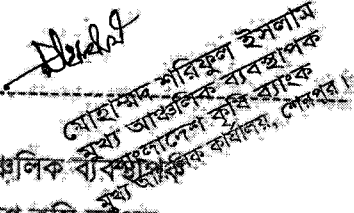 মোহাম্মদ শরিফুল ইসলাম
মুখ্য আঞ্চলিক ব্যবস্থাপক
বাংলাদেশ কৃষি ব্যাংক
মুখ্য আঞ্চলিক কার্যালয়, শেরপুর।
ঞ্চলিক ব্যবস্থাপক